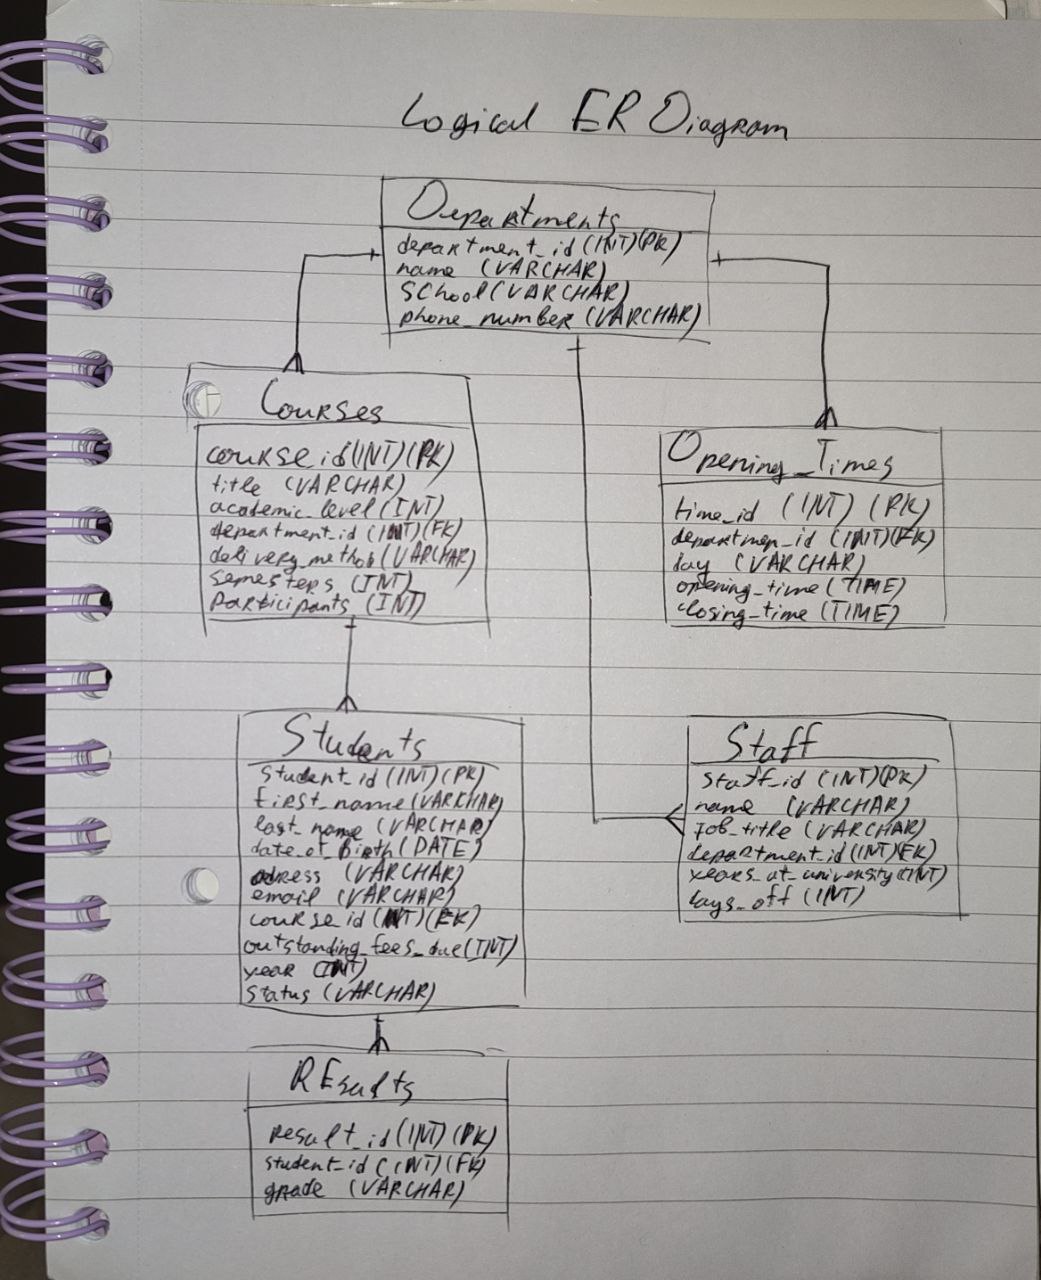 Logical ER Diagram
Departments
department_id (INT)(PK)
name (VARCHAR)
School (VARCHAR)
phone_number (VARCHAR)
Courses
course_id (INT)(PK)
title (VARCHAR)
academic_level (INT)
department_id (INT)(FK)
delivery_method (VARCHAR)
semesters (INT)
Participants (INT)
Opening_Times
time_id (INT) (PK)
departmen_id (INT)(FK)
day (VARCHAR)
opening_time (TIME)
closing_time (TIME)
Students
Student_id (INT)(PK)
first_name (VARCHAR)
last_name (VARCHAR)
date_of_Birth (DATE)
adress (VARCHAR)
email (VARCHAR)
course_id (INT)(FK)
outstanding_fees_due (INT)
year (INT)
Status (VARCHAR)
Staff
Staff_id (INT)(PK)
name (VARCHAR)
Job_title (VARCHAR)
department_id (INT)(FK)
years_at_university (INT)
days_off (INT)
REsults
result_id (INT) (PK)
student_id (INT)(FK)
grade (VARCHAR)